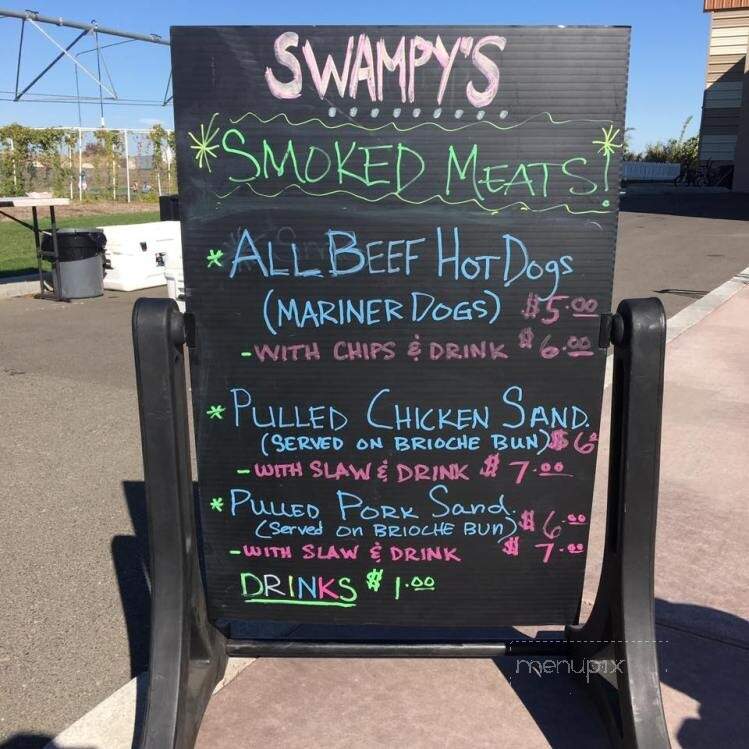 SWAMPY'S
*SMOKED MEATS!*
* ALL BEEF HOT DOGS
(MARINER DOGS) $5.00
- WITH CHIPS & DRINK $6.00
* PULLED CHICKEN SAND.
(SERVED ON BRIOCHE BUN) $6
- WITH SLAW & DRINK $7.00
* PULLED PORK Sand.
(Served on BRIOCHE BUN) $6.00
- WITH SLAW & DRINK $7.00
DRINKS $1.00
menupix